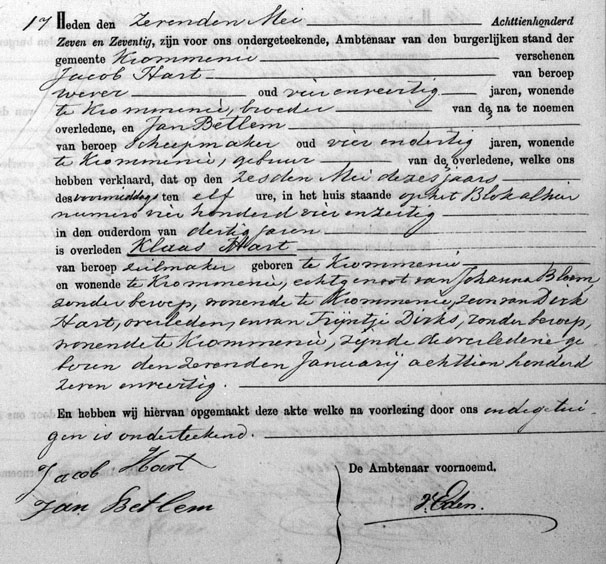 17 Heden den zevenden Mei Achttienhonderd
Zeven en Zeventig, zijn voor ons ondergeteekende, Ambtenaar van den burgerlijken stand der
gemeente Krommenie verschenen
Jacob Hart van beroep
wever oud vier en veertig jaren, wonende
te Krommenie, broeder van de na te noemen
overledene, en Jan Betlem
van beroep scheepmaker oud vier en dertig jaren, wonende
te Krommenie, gebuur van de overledene, welke ons
hebben verklaard, dat op den zesden Mei dezes jaars
des voormiddags ten elf ure, in het huis staande op het Blok alhier
numero vier honderd vier en zestig
in den ouderdom van dertig jaren
is overleden Klaas Hart
van beroep zeilmaker geboren te Krommenie
en wonende te Krommenie, echtgenoot van Johanna Bloem
zonder beroep, wonende te Krommenie, zoon van Dirk
Hart, overleden, en van Trijntje Dirks, zonder beroep,
wonende te Krommenie, zijnde de overledene ge
boren den zevenden Januarij achttien honderd
zeven en veertig.
En hebben wij hiervan opgemaakt deze akte welke na voorlezing door ons en de getui-
gen is onderteekend.
Jacob Hart
De Ambtenaar voornoemd,
Jan Betlem